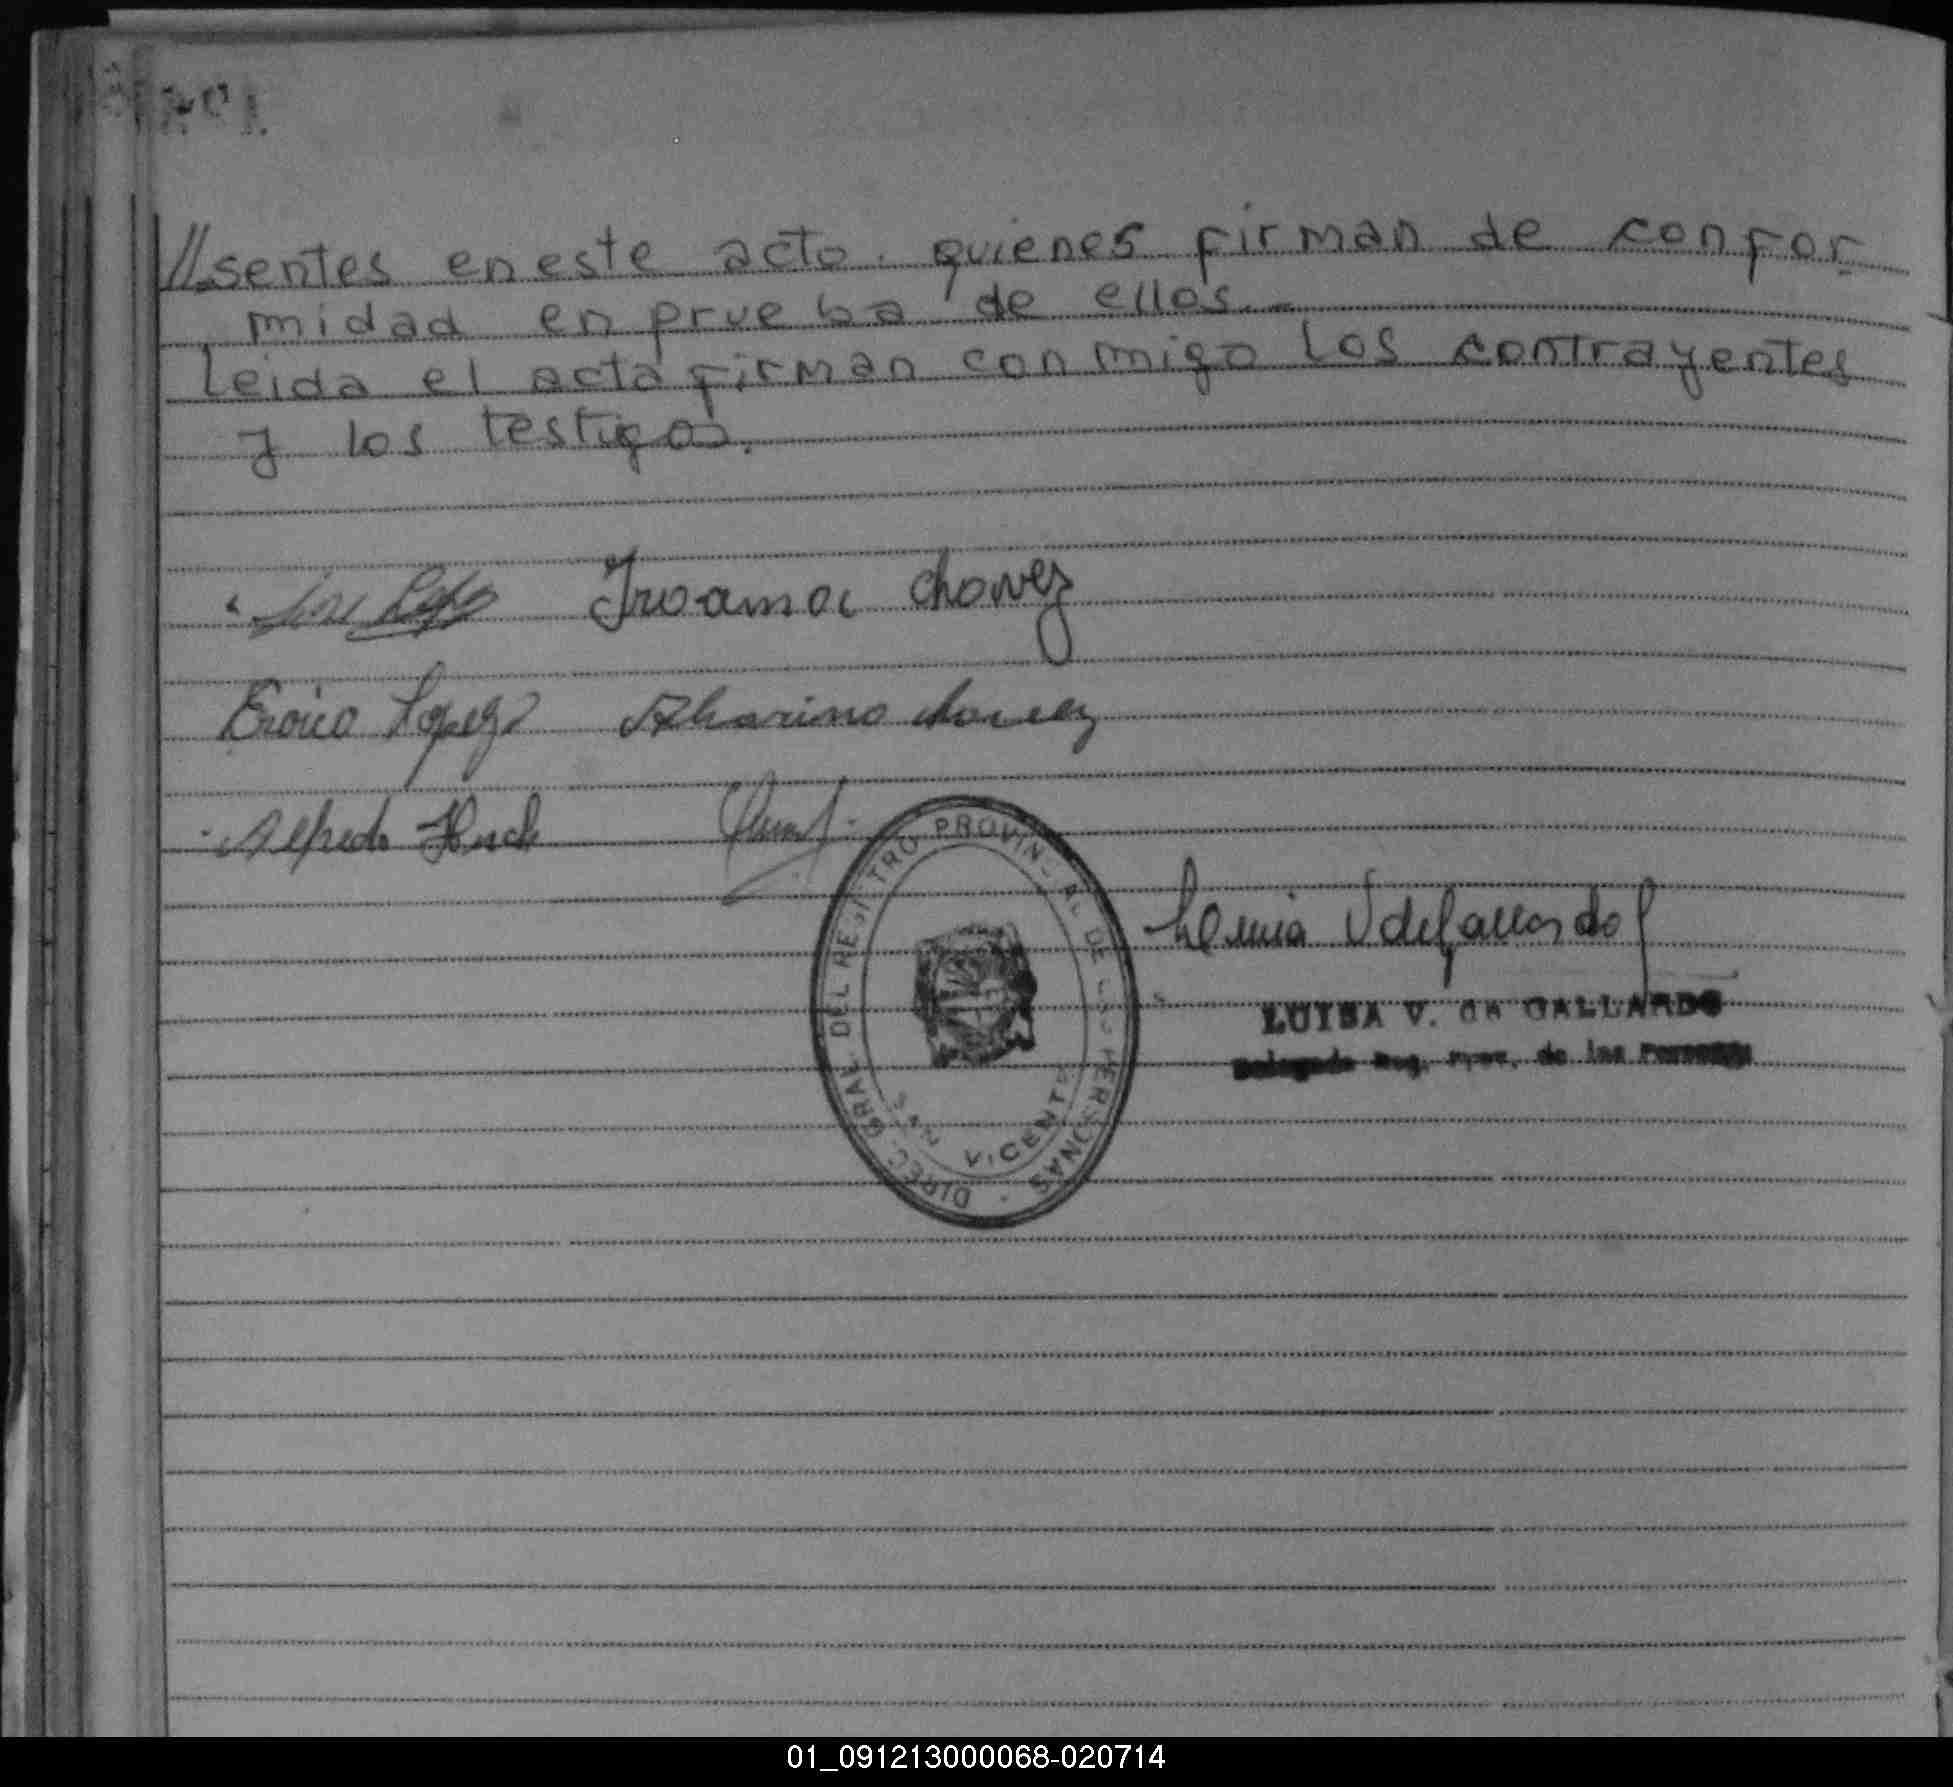 //sentes en este acto. quienes firman de confor
midad en prueba de ellos.-
Leida el acta firman conmigo los contrayentes
y los testigos.
Jose Lopez chavez
Lopez chavez
Alfredo
DIREC. GRAL DEL REGISTRO PROVINCIAL DE LAS PERSONAS
SAN VICENTE
V de Gallardo
LUISA V. de GALLARDO
Delegada Reg. Prov. de las Personas
01_091213000068-020714